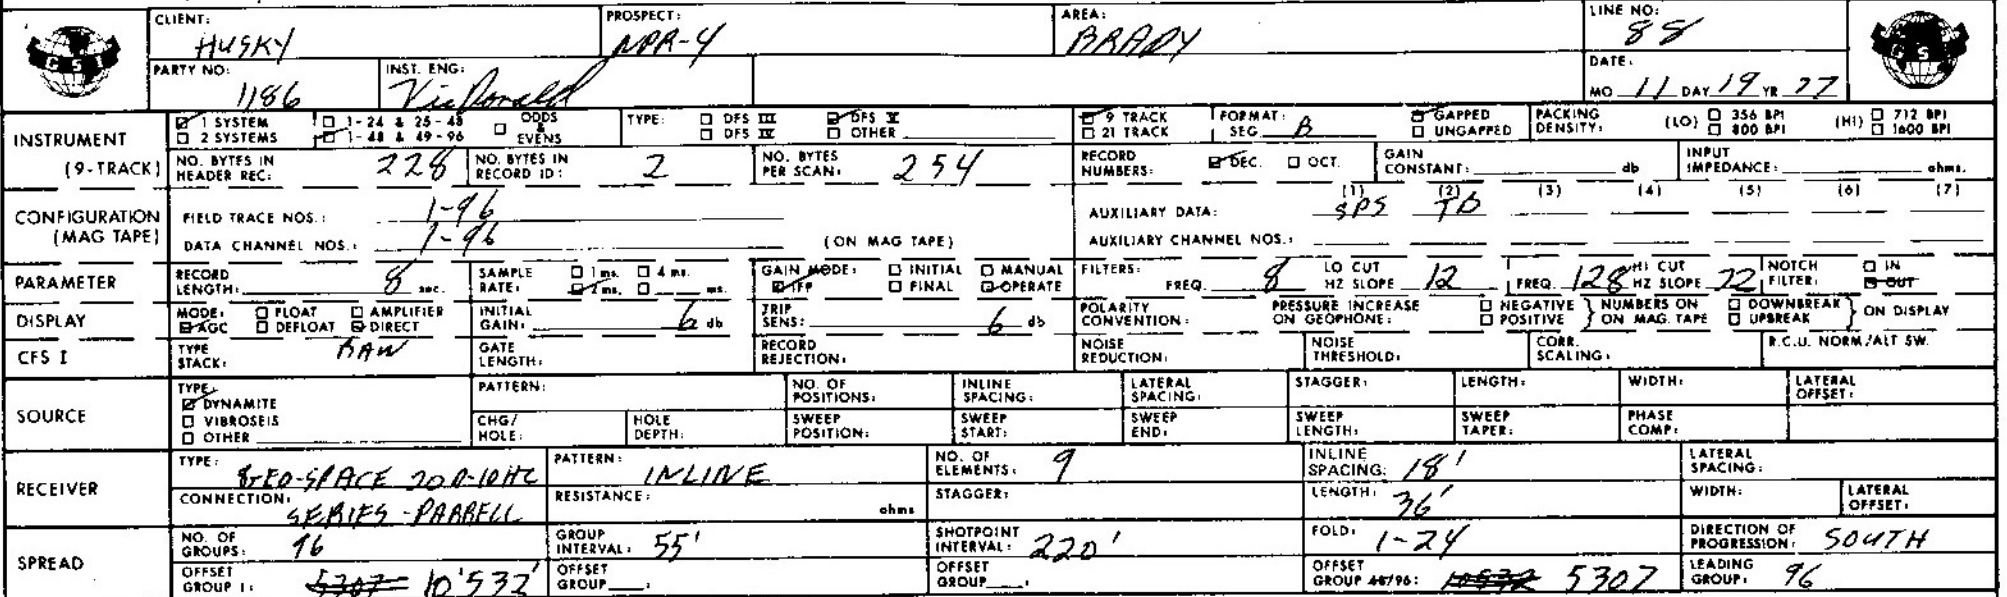 CLIENT: HUSKY PROSPECT: NPR-4 AREA: BRADY LINE NO: 88
GSI GSI
PARTY NO: 1186 INST. ENG: Vic Donald DATE: MO 11 DAY 19 YR 77
INSTRUMENT (9-TRACK)
1 SYSTEM 1-24 & 25-48 ODDS & EVENS TYPE: DFS III DFS V 9 TRACK FORMAT: SEG B GAPPED PACKING DENSITY: (LO) 356 BPI (HI) 712 BPI
2 SYSTEMS 1-48 & 49-96 DFS IV OTHER 21 TRACK UNGAPPED 800 BPI 1600 BPI
NO. BYTES IN HEADER REC: 228 NO. BYTES IN RECORD ID: 2 NO. BYTES PER SCAN: 254 RECORD NUMBERS: DEC. OCT. GAIN CONSTANT: db INPUT IMPEDANCE: ohms.
CONFIGURATION (MAG TAPE)
(1) (2) (3) (4) (5) (6) (7)
FIELD TRACE NOS.: 1-96 AUXILIARY DATA: SPS TB
DATA CHANNEL NOS.: 1-96 (ON MAG TAPE) AUXILIARY CHANNEL NOS.:
PARAMETER RECORD LENGTH: 8 sec. SAMPLE RATE: 1 ms. 4 ms. 2 ms. ms. GAIN MODE: INITIAL MANUAL IFP FINAL OPERATE FILTERS: FREQ. 8 LO CUT HZ SLOPE 12 FREQ. 128 HI CUT HZ SLOPE 72 NOTCH FILTER: IN OUT
DISPLAY MODE: FLOAT AMPLIFIER AGC DEFLOAT DIRECT INITIAL GAIN: 6 db TRIP SENS: 6 db POLARITY CONVENTION: PRESSURE INCREASE ON GEOPHONE: NEGATIVE POSITIVE NUMBERS ON ON MAG. TAPE DOWNBREAK UPBREAK ON DISPLAY
CFS I TYPE STACK: RAW GATE LENGTH: RECORD REJECTION: NOISE REDUCTION: NOISE THRESHOLD: CORR. SCALING: R.C.U. NORM/ALT SW.
SOURCE TYPE: DYNAMITE VIBROSEIS OTHER
PATTERN: NO. OF POSITIONS: INLINE SPACING: LATERAL SPACING: STAGGER: LENGTH: WIDTH: LATERAL OFFSET:
CHG/HOLE: HOLE DEPTH: SWEEP POSITION: SWEEP START: SWEEP END: SWEEP LENGTH: SWEEP TAPER: PHASE COMP:
RECEIVER TYPE: GEO-SPACE 20D-10HZ PATTERN: INLINE NO. OF ELEMENTS: 9 INLINE SPACING: 18' LATERAL SPACING:
CONNECTION: SERIES-PARRELL RESISTANCE: ohms STAGGER: LENGTH: 36' WIDTH: LATERAL OFFSET:
SPREAD NO. OF GROUPS: 96 GROUP INTERVAL: 55' SHOTPOINT INTERVAL: 220' FOLD: 1-24 DIRECTION OF PROGRESSION: SOUTH
OFFSET GROUP 1: 5307 10'532' OFFSET GROUP : OFFSET GROUP : OFFSET GROUP 48/96: 10532 5307 LEADING GROUP: 96